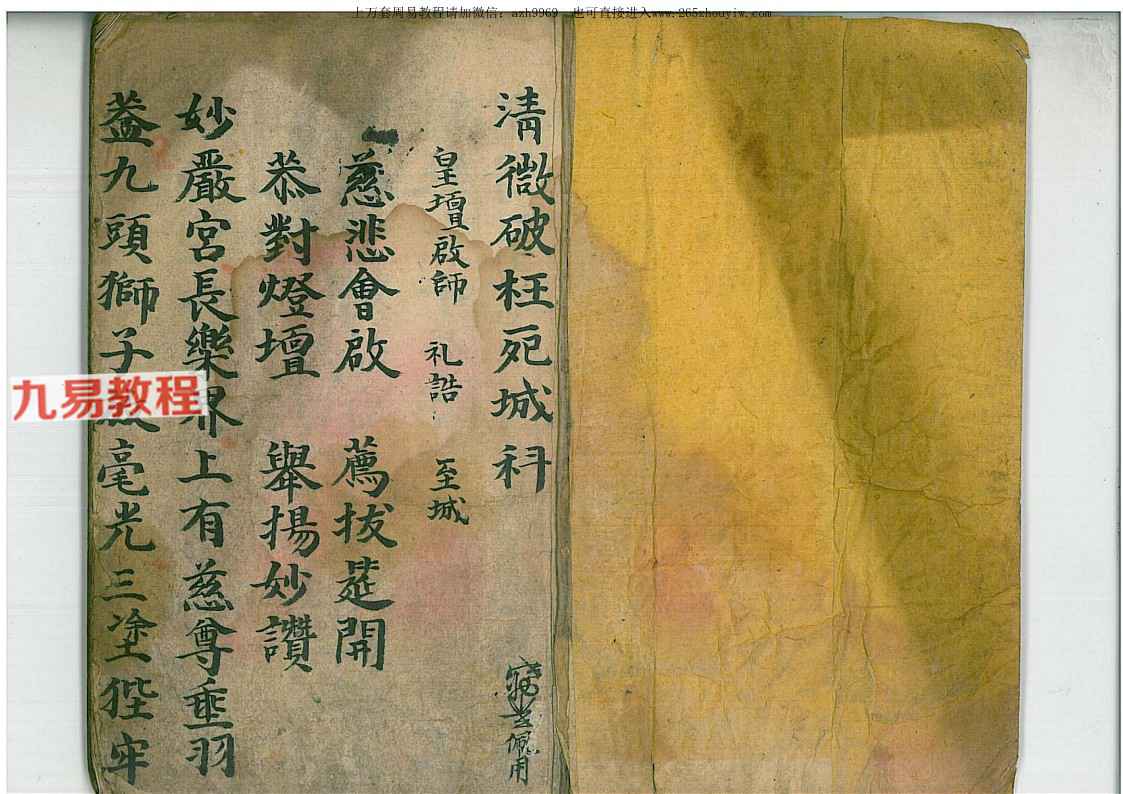 上万套周易教程请加微信：azh9969 也可直接进入www.265zhouyiw.com
清微破枉死城科
佩用
皇壇啟師 礼誥 至城
慈悲會啟 薦拔莚開
恭對燈壇 舉揚妙讚
妙嚴宮長樂界上有慈尊垂羽
葢九頭獅子毫光三塗狴牢
九易教程